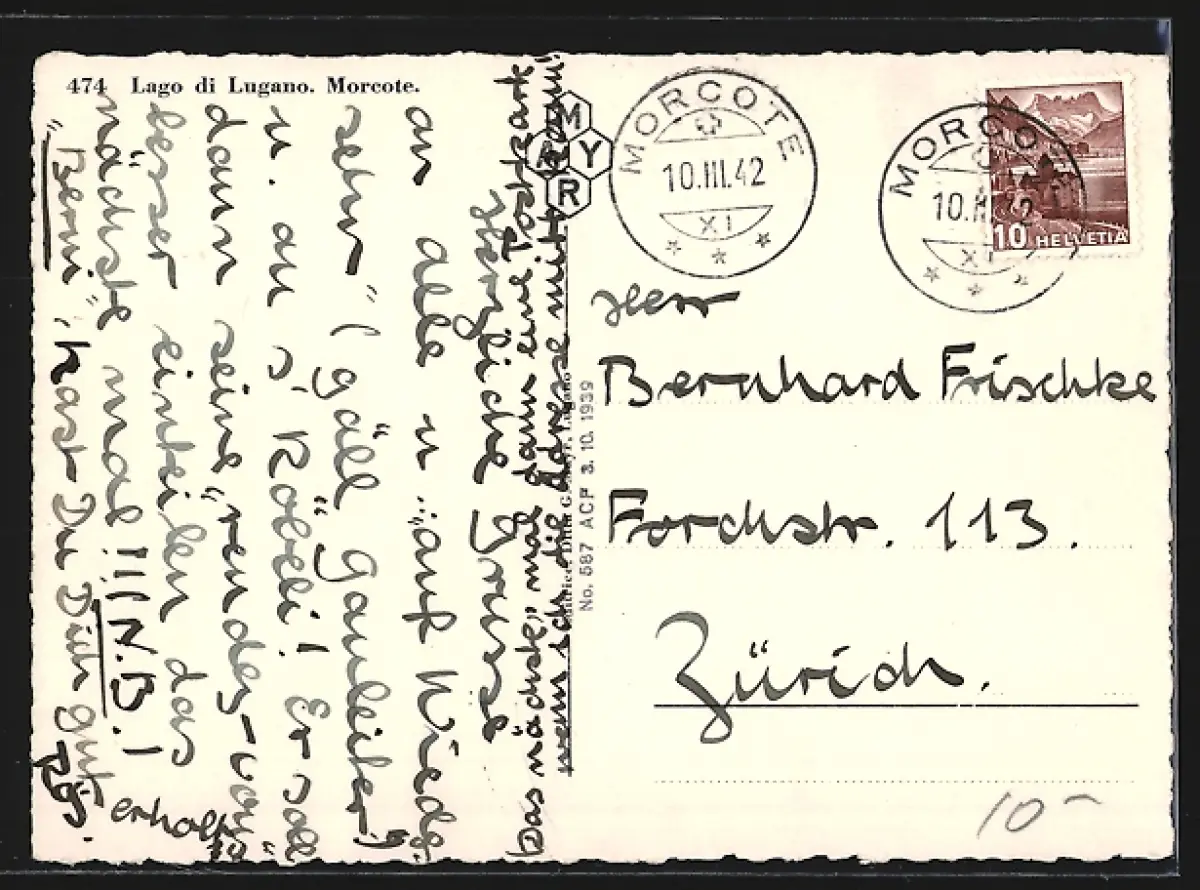 474 Lago di Lugano. Morcote.
Herzliche Grüsse
an alle u. "auf Wieder-
sehn" (gäll Gauleiter!)
u. an s' Röbeli! Er soll
dann seine "rendez-vous"
besser einteilen das
nächste mal!!! N.B.!
"Berni", hast Du Dich gut
erholt?
Rös.
Das nächste mal dann eine Postkarte
wenn ich die Adresse mit
MAYR
No. 587 ACF 3. 10. 1939
MORCOTE
10.III.42
XI
MORCOTE
10.III.42
XI
10 HELVETIA
Herr
Bernhard Frischke
Forchstr. 113.
Zürich.
10-